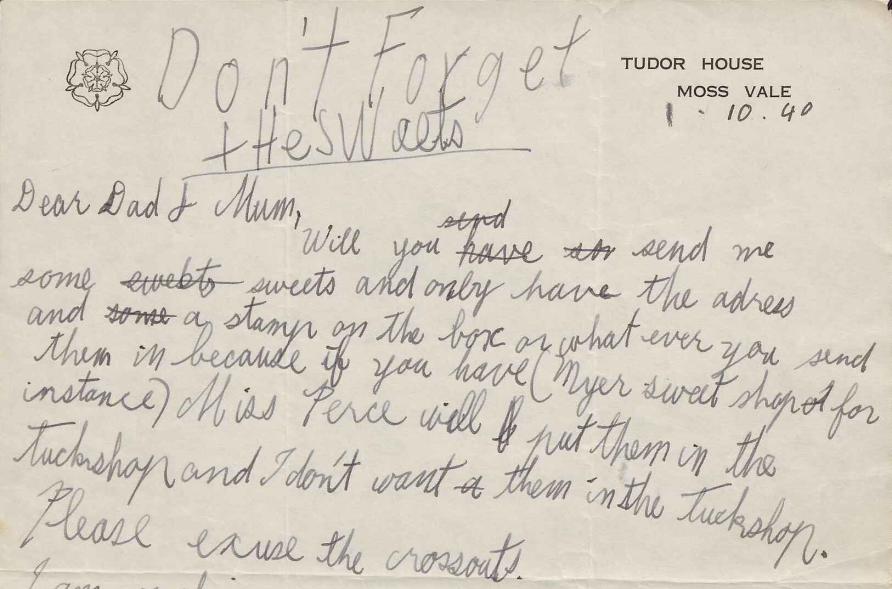 Don't Forget
tHe SWeets
TUDOR HOUSE
MOSS VALE
1 . 10 . 40
Dear Dad & Mum,
send
Will you have sn send me
some swebts sweets and only have the adress
and some a stamp on the box or what ever you send
them in because if you have (Myer sweet shop for
instance) Miss Perce will put them in the
tuckshop and I don't want a them in the tuckshop.
Please excuse the crossouts.
I am